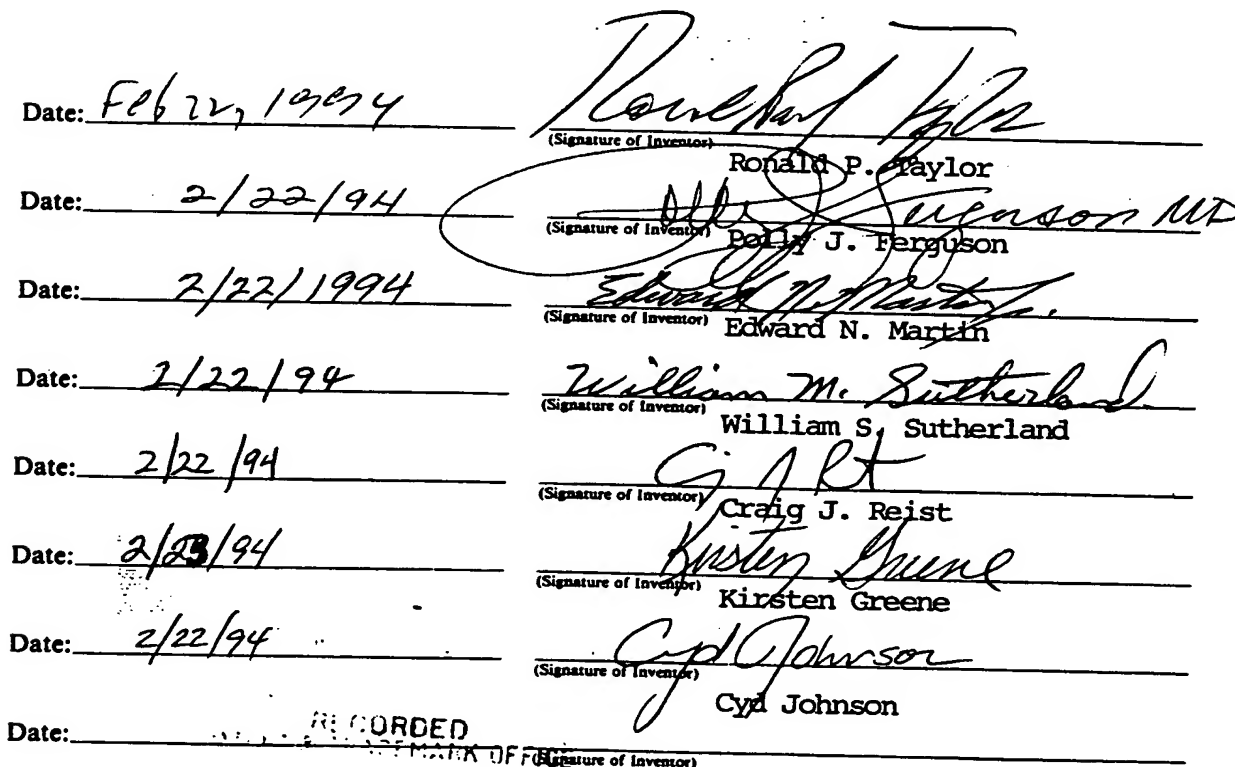 Date: Feb 22, 1994
(Signature of Inventor)
Ronald P. Taylor
Date: 2/22/94 Ferguson MD
(Signature of Inventor) Polly J. Ferguson
Date: 2/22/1994 Edward N. Martin Jr.
(Signature of Inventor) Edward N. Martin
Date: 2/22/94 William M. Sutherland
(Signature of Inventor)
William S. Sutherland
Date: 2/22/94
(Signature of Inventor) Craig J. Reist
Date: 2/23/94 Kirsten Greene
(Signature of Inventor)
Kirsten Greene
Date: 2/22/94 Cyd Johnson
(Signature of Inventor)
Cyd Johnson
RECORDED
Date: MARK OFFICE
(Signature of Inventor)